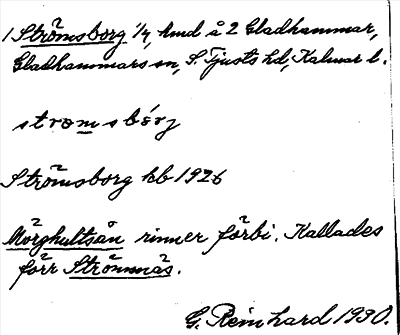 1 Strömsborg 1/4, hmd å 2 Gladhammar,
Gladhammars sn, S Tjusts hd, Kalmar l.
stromsbórj
Strömsborg kb 1926
Mörghultsån rinner förbi. Kallades
förr Strömmås.
G. Reinhard 1930.